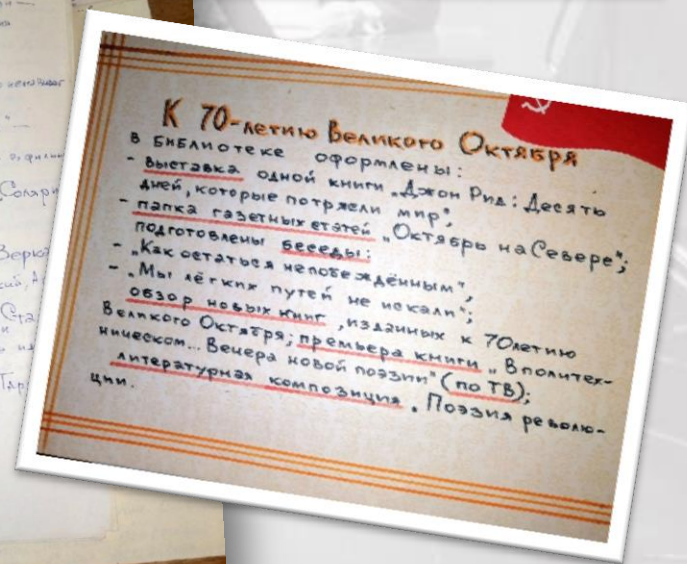 Соляри
К 70-летию Великого Октября
в библиотеке оформлены:
- выставка одной книги „Джон Рид: Десять
дней, которые потрясли мир";
- папка газетных статей „Октябрь на Севере";
подготовлены беседы:
- „Как остаться непобеждённым",
- „Мы лёгких путей не искали";
обзор новых книг, изданных к 70летию
Великого Октября; премьера книги „В политех-
ническом... Вечера новой поэзии" (по ТВ);
литературная композиция „Поэзия револю-
ции.